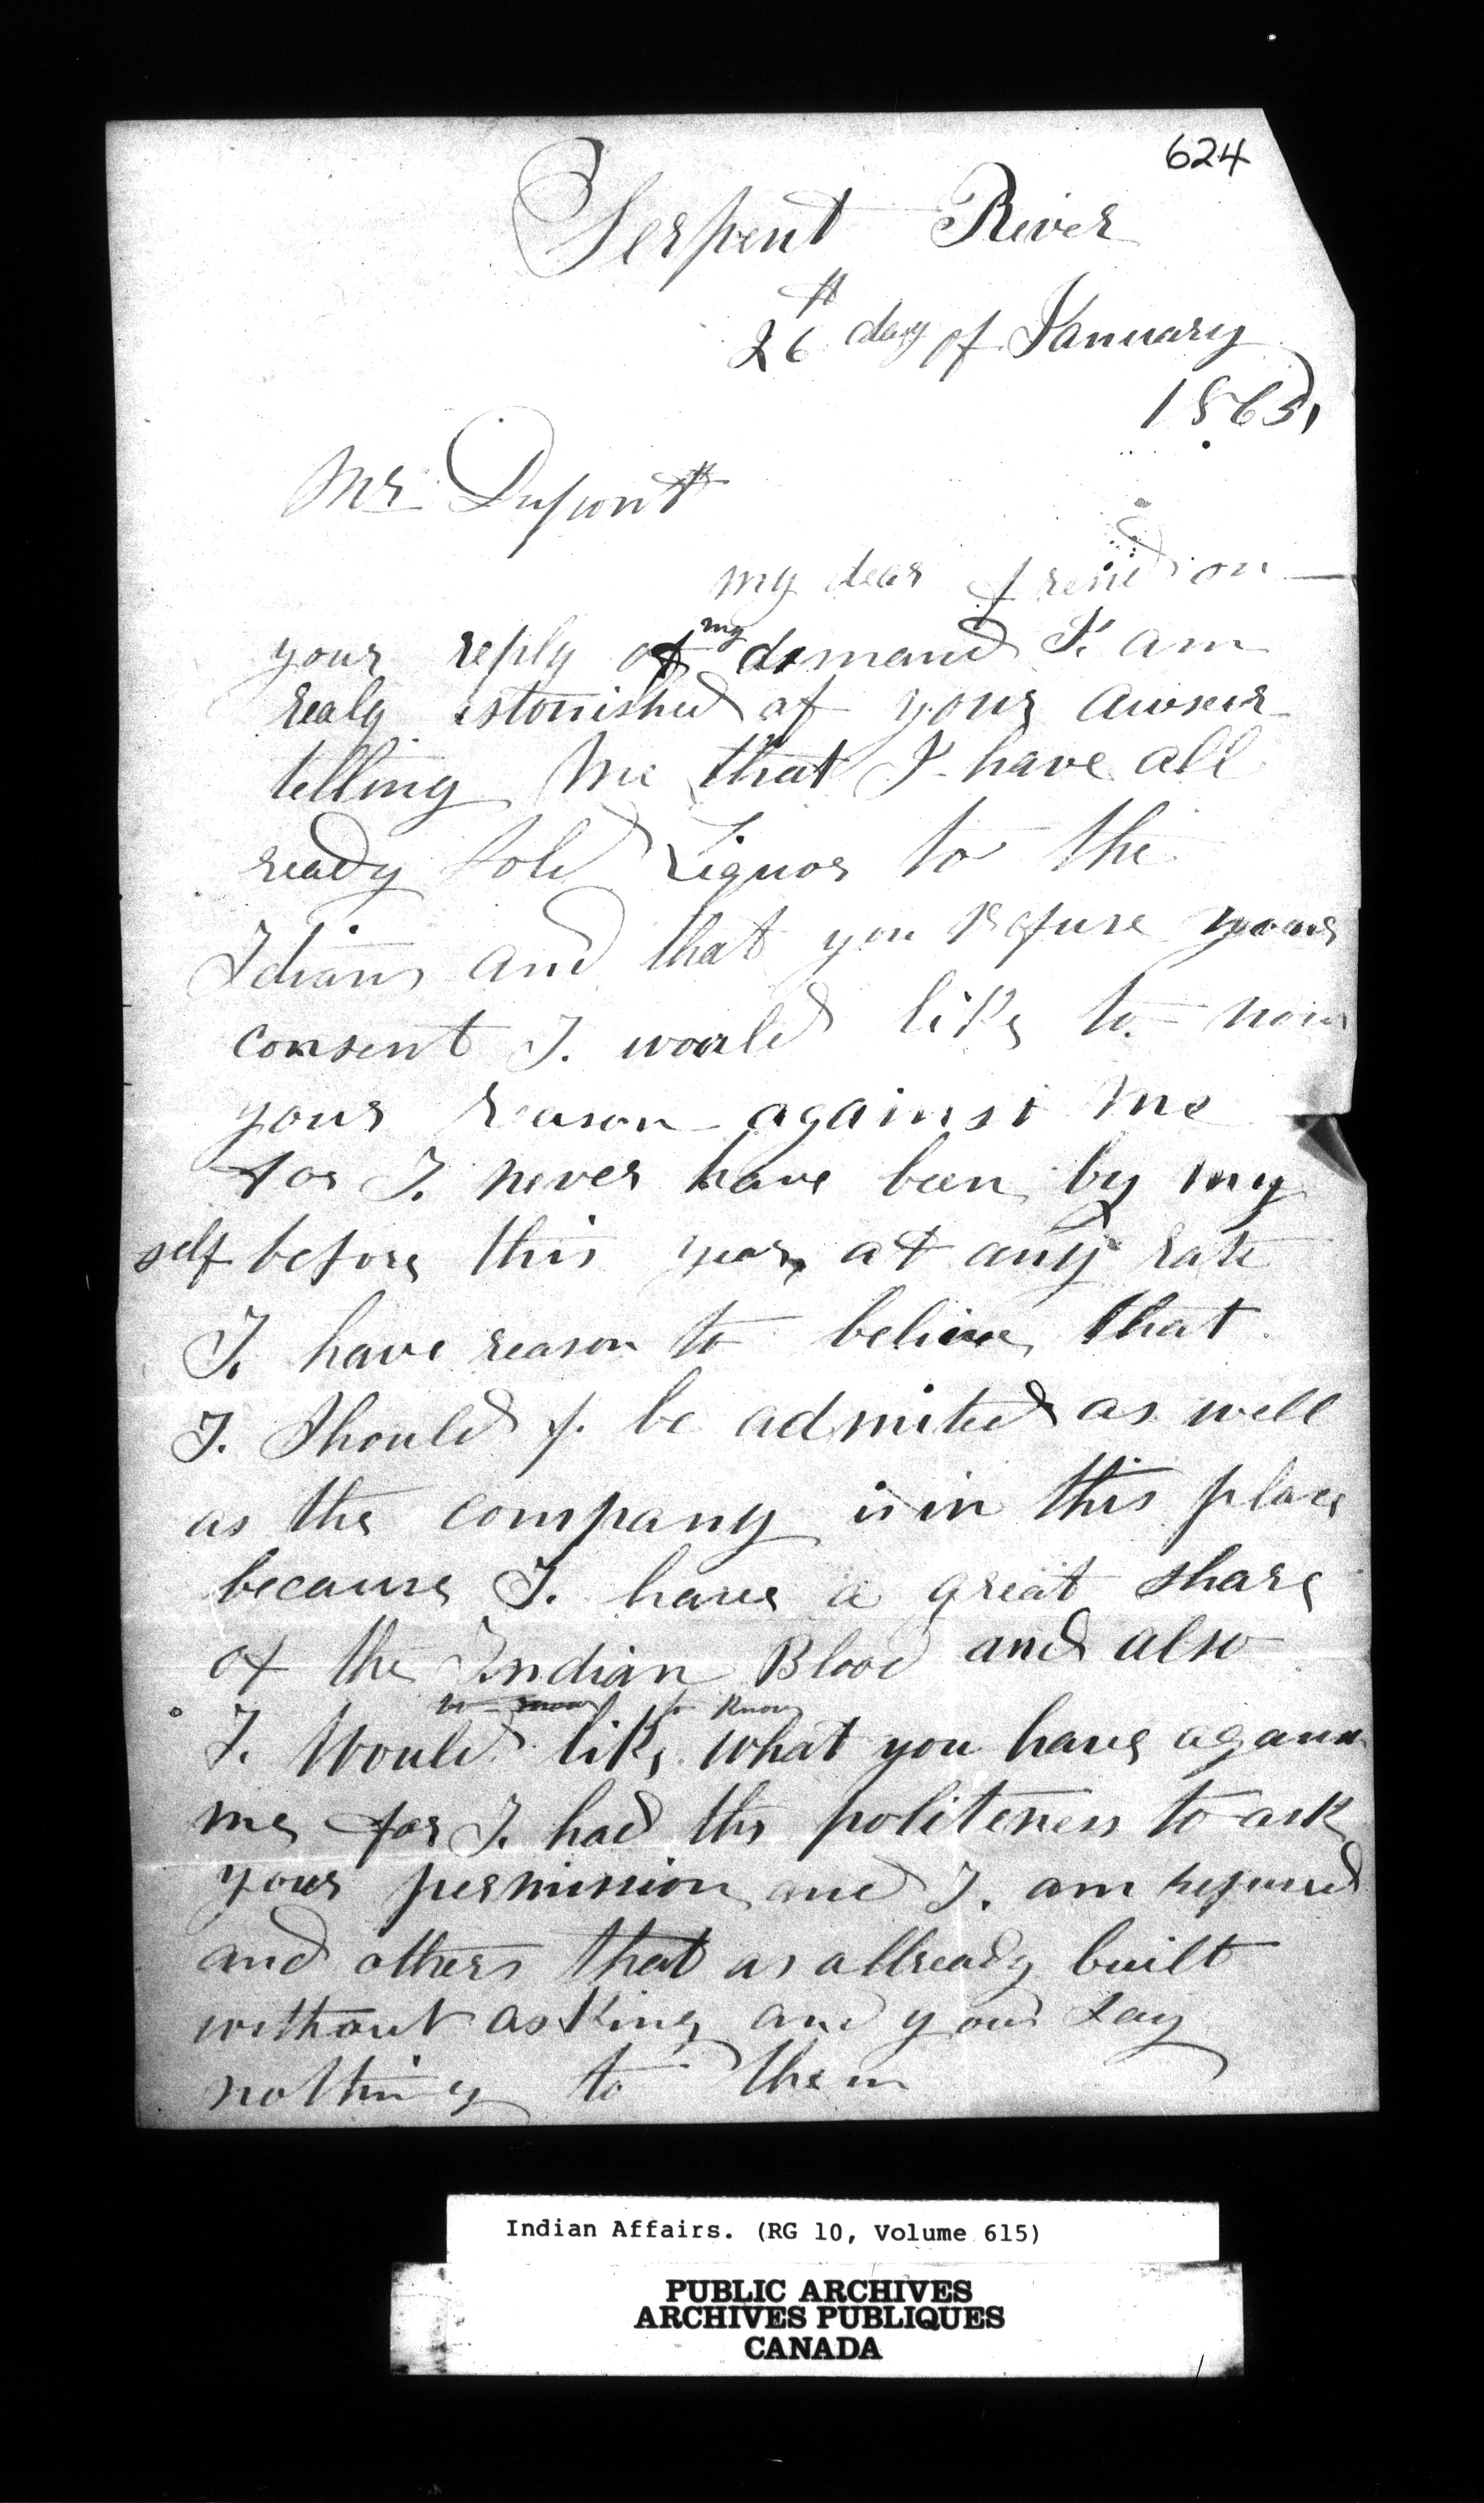 624
Serpent River
26th day of January
1865,
Mr Dupont
my dear frend on
your reply of my demand I. am
realy estonished of your awnser
telling Me that I have all
ready sold Liquor to the
Idians and that you Refuse your
consent I. would like to now
your reason against Me
for I. never have been by my
self before this year, at any rate
I. have reason to believe that
I. Should f. be admited as well
as the company is in this place
because I. have a great share
of the Indian Blood and also
to know
I. Would like What you have agains
me for I. had the politeness to ask
your permission and I. am refused
and others that as allready built
without asking and you say
nothing to them
Indian Affairs. (RG 10, Volume 615)
PUBLIC ARCHIVES
ARCHIVES PUBLIQUES
CANADA